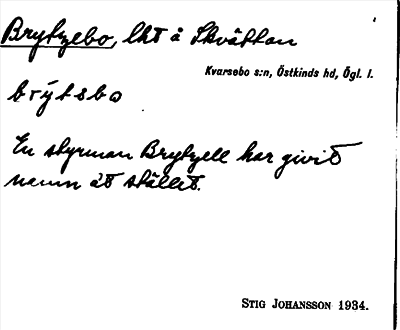 Brytzebo, lht å Skvättan
Kvarsebo s:n, Östkinds hd, Ögl. l.
brýtsbo
En styrman Brytzell har givit
namn åt stället.
STIG JOHANSSON 1934.